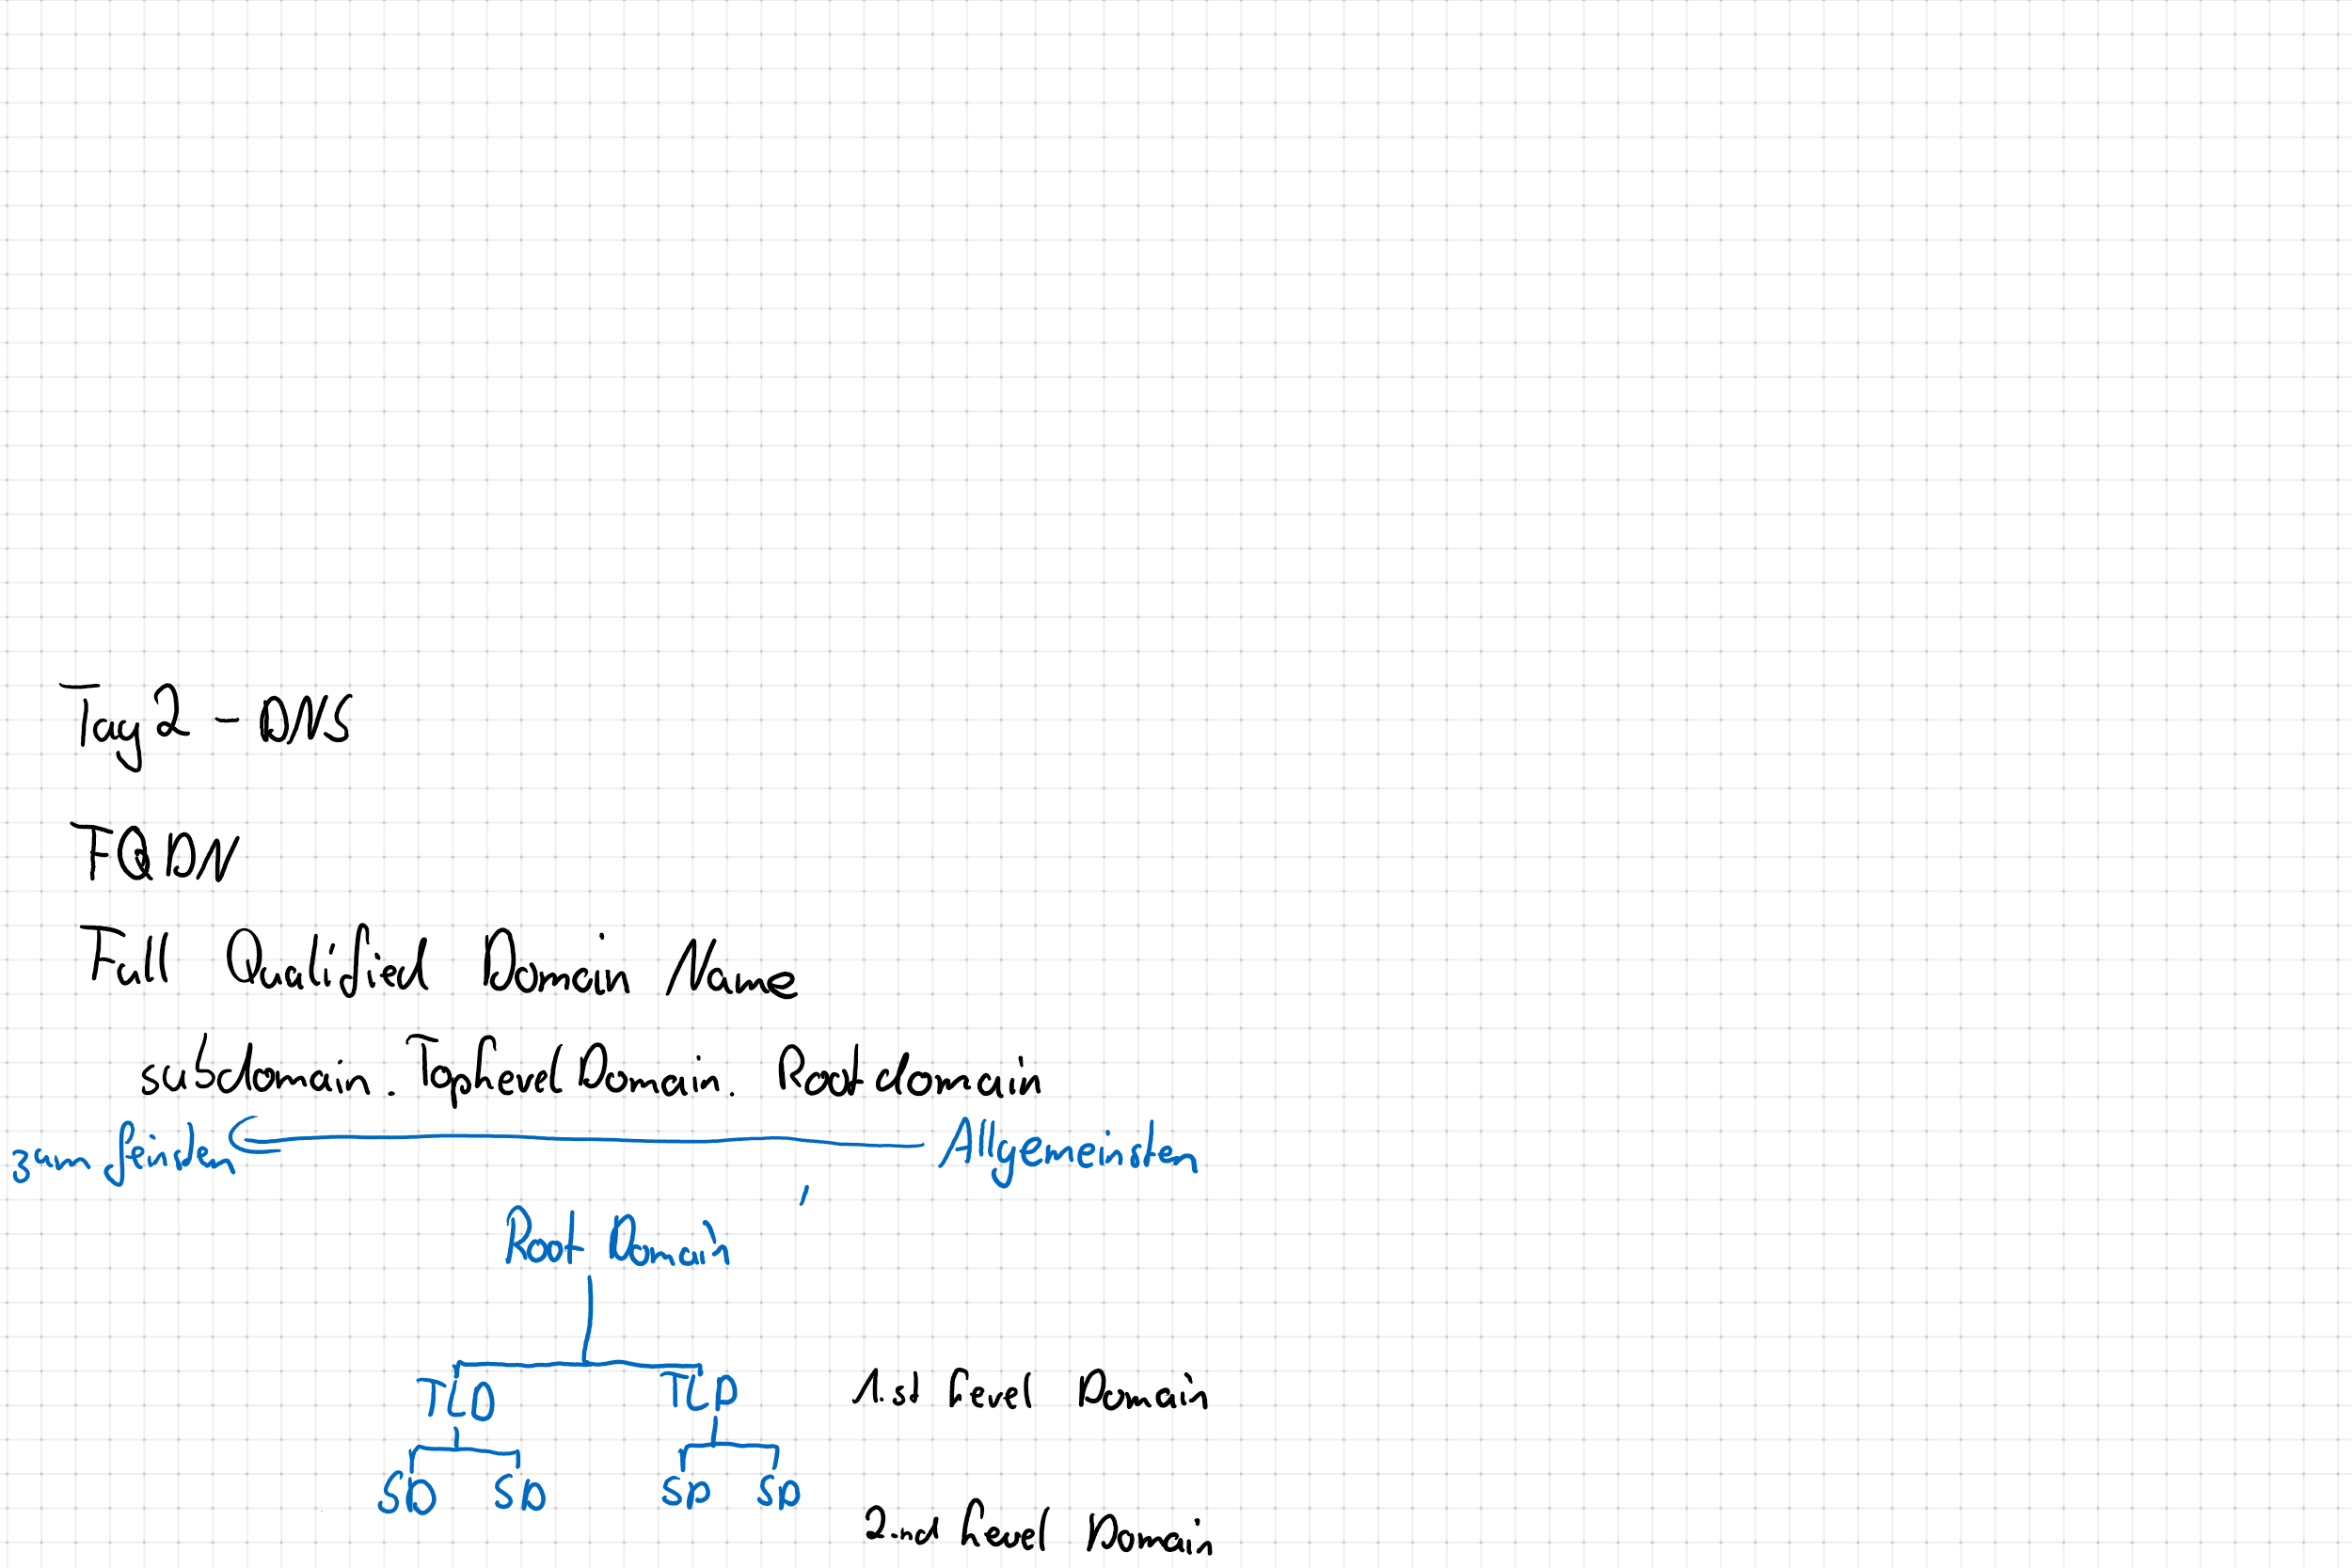 Tag 2 - DNS
FQDN
Full Qualified Domain Name
subdomain. TopLevelDomain. Rootdomain
zum feinsten Allgemeinsten
Root Domain
TLD TLD 1.st Level Domain
SD SD SD SD
2.nd Level Domain